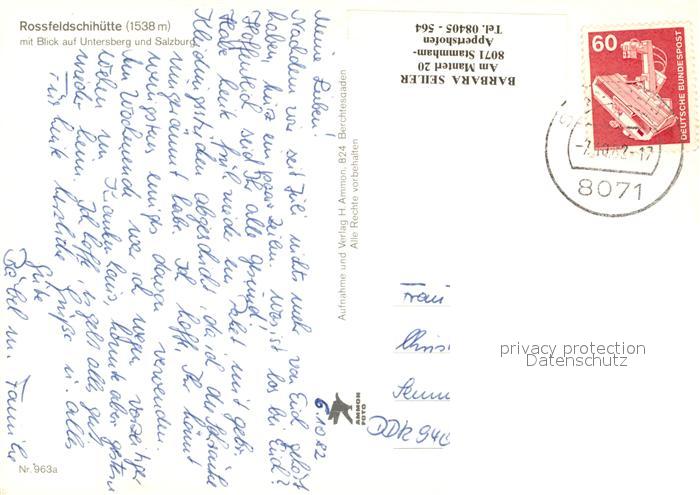 Rossfeldschihütte (1538 m)
mit Blick auf Untersberg und Salzburg
Nr. 963a
6.10.82
Meine Lieben!
Nachdem wir seit Juli nichts mehr von Euch gehört
haben, kurz ein paar Zeilen. Was ist los bei Euch?
Hoffentlich seid Ihr alle gesund!
Habe heute früh wieder ein Paket mit gebr.
Kleidungsstücken abgeschickt, da ich die Schränke
ausgeräumt habe. Ich hoffe, Ihr könnt
wenigstens einiges davon verwenden.
Am Wochenende war ich wegen vorzeitiger
Wehen im Krankenhaus, konnte aber gestern
wieder heim. Ich hoffe, es geht alles gut.
Für heute herzliche Grüße u. alles
Gute
Bärbel m. Familie
Aufnahme und Verlag H. Ammon, 824 Berchtesgaden
Alle Rechte vorbehalten
AMMON
FOTO
BARBARA SEILER
Am Mantel 20
8071 Stammham-
Appertshofen
Tel. 08405 - 564
60
DEUTSCHE BUNDESPOST
-7.10.82-17
8071
Frau
Chris
DDR 940
privacy protection
Datenschutz